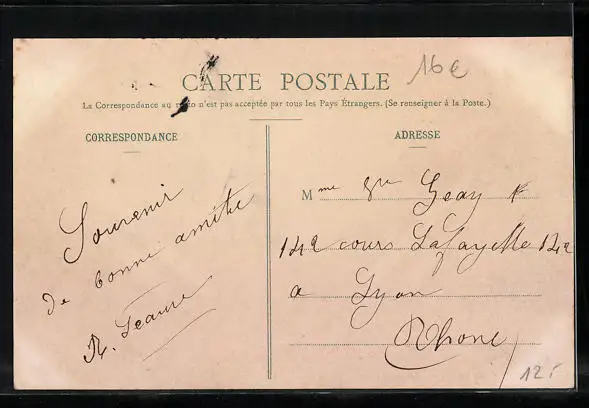 16€
CARTE POSTALE
La Correspondance au recto n'est pas acceptée par tous les Pays Étrangers. (Se renseigner à la Poste.)
CORRESPONDANCE
ADRESSE
Souvenir
de bonne amitié
Mme Vve Geay
142 cours Lafayette 142
a Lyon
Rhone
12F